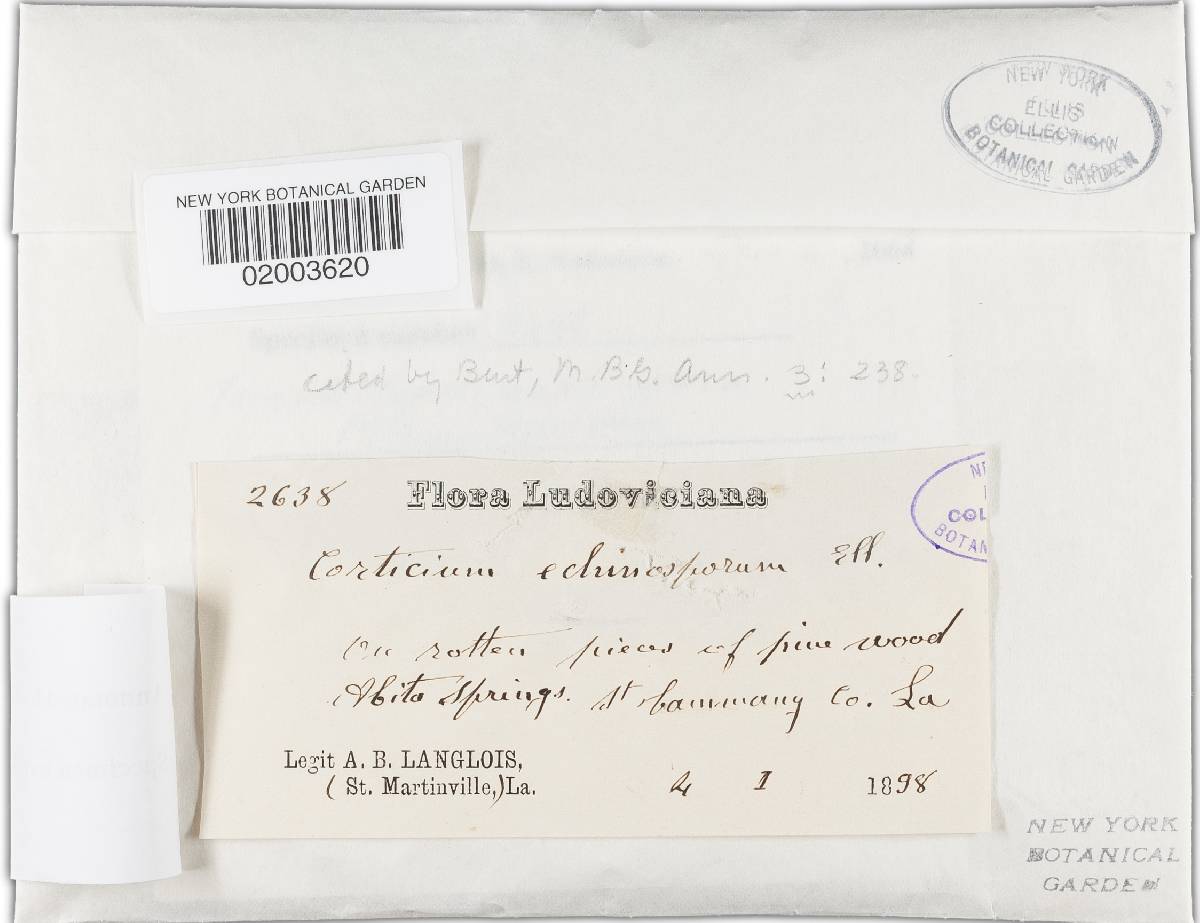 NEW YORK
ELLIS
COLLECTION
BOTANICAL GARDEN
NEW YORK BOTANICAL GARDEN
02003620
cited by Burt, M.B.G. Ann. 3: 238.
2638 Flora Ludoviciana
NE
COL
BOTAN
Corticium echinosporum Ell.
On rotten pieces of pine wood
Abita Springs. St Tammany Co. La
Legit A. B. LANGLOIS,
(St. Martinville,) La.
4 1 1898
NEW YORK
BOTANICAL
GARDEN